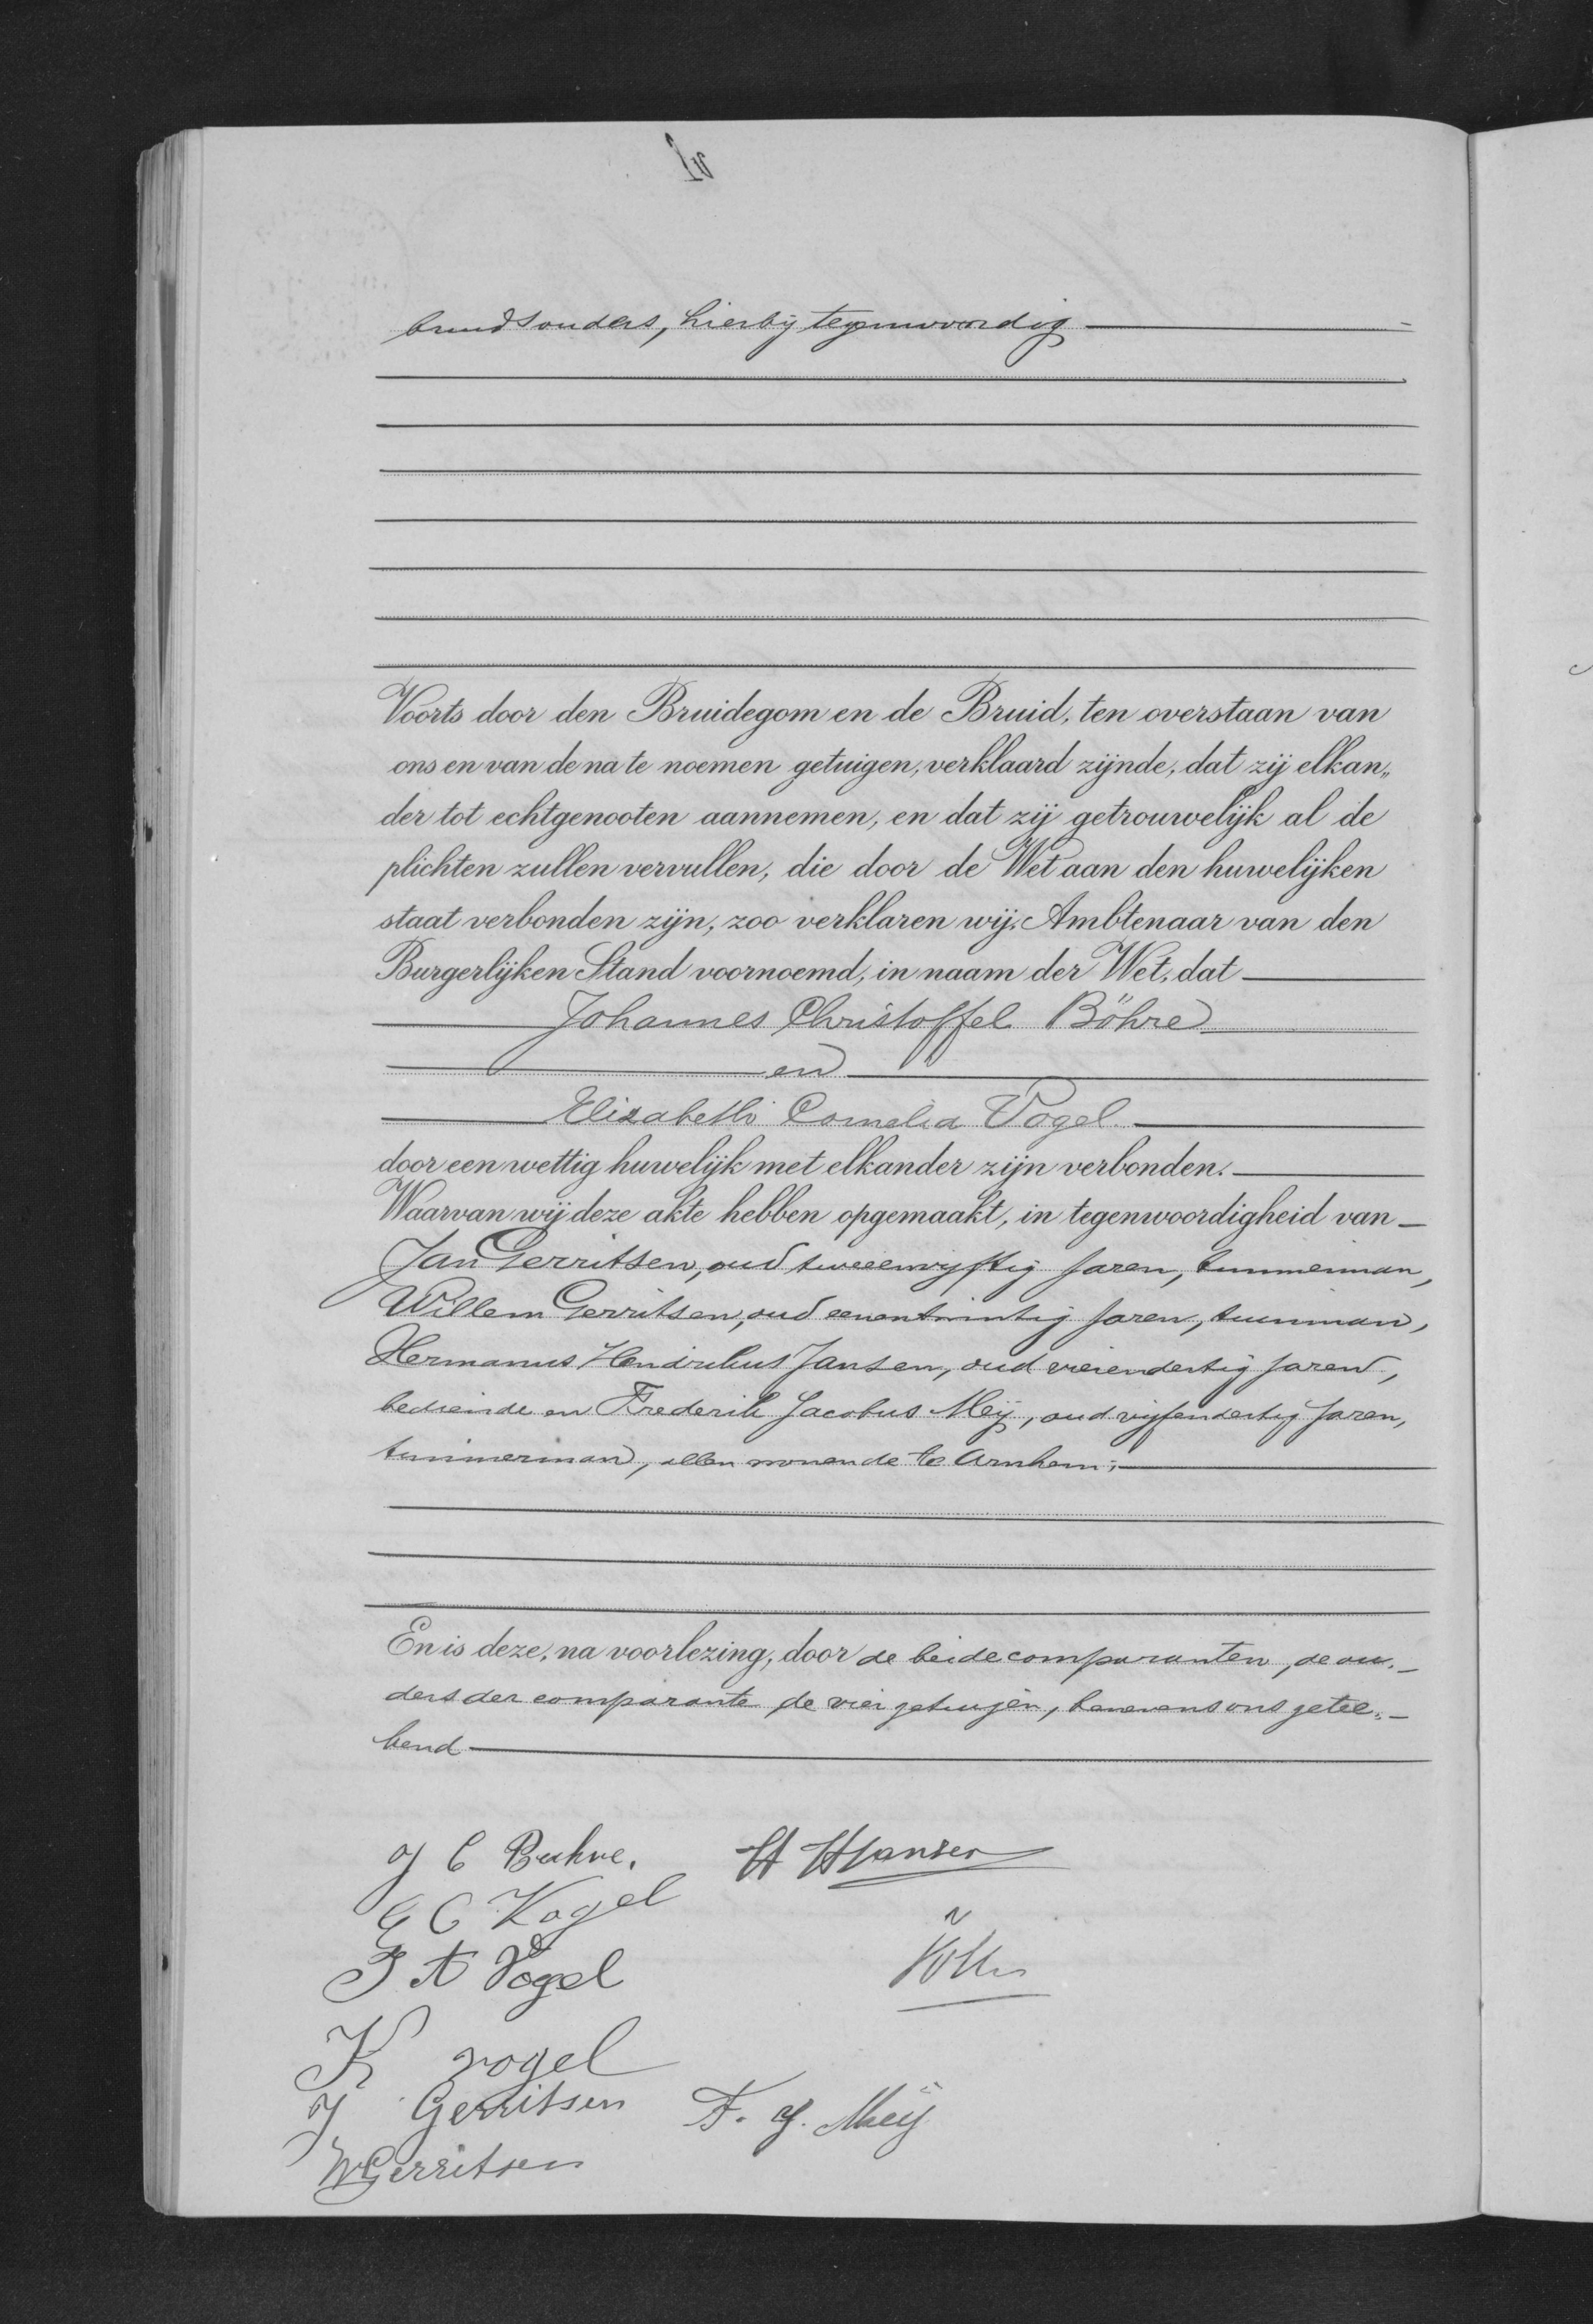 bruidsouders, hierbij tegenwoordig
Voorts door den Bruidegom en de Bruid, ten overstaan van
ons en van de na te noemen getuigen, verklaard zijnde, dat zij elkan„
der tot echtgenooten aannemen, en dat zij getrouwelijk al de
plichten zullen vervullen, die door de Wet aan den huwelijken
staat verbonden zijn, zoo verklaren wij, Ambtenaar van den
Burgerlijken Stand voornoemd, in naam der Wet, dat
Johannes Christoffel Böhre
en
Elizabeth Cornelia Vogel
door een wettig huwelijk met elkander zijn verbonden.
Waarvan wij deze akte hebben opgemaakt, in tegenwoordigheid van
Jan Gerritsen, oud tweeenvijftig jaren, timmerman,
Willem Gerritsen, oud eenentwintig jaren, tuinman,
Hermanus Hendrikus Jansen, oud vierendertig jaren,
bediende en Frederik Jacobus Meij, oud vijfendertig jaren,
timmerman, allen wonende te Arnhem;
En is deze, na voorlezing, door de beide comparanten, de ou„
ders der comparante de vier getuigen, benevens ons getee„
kend
J C Buhre. H H Jansen
E C Vogel
J A Vogel
K vogel
J Gerritsen F. J. Meij
W Gerritsen